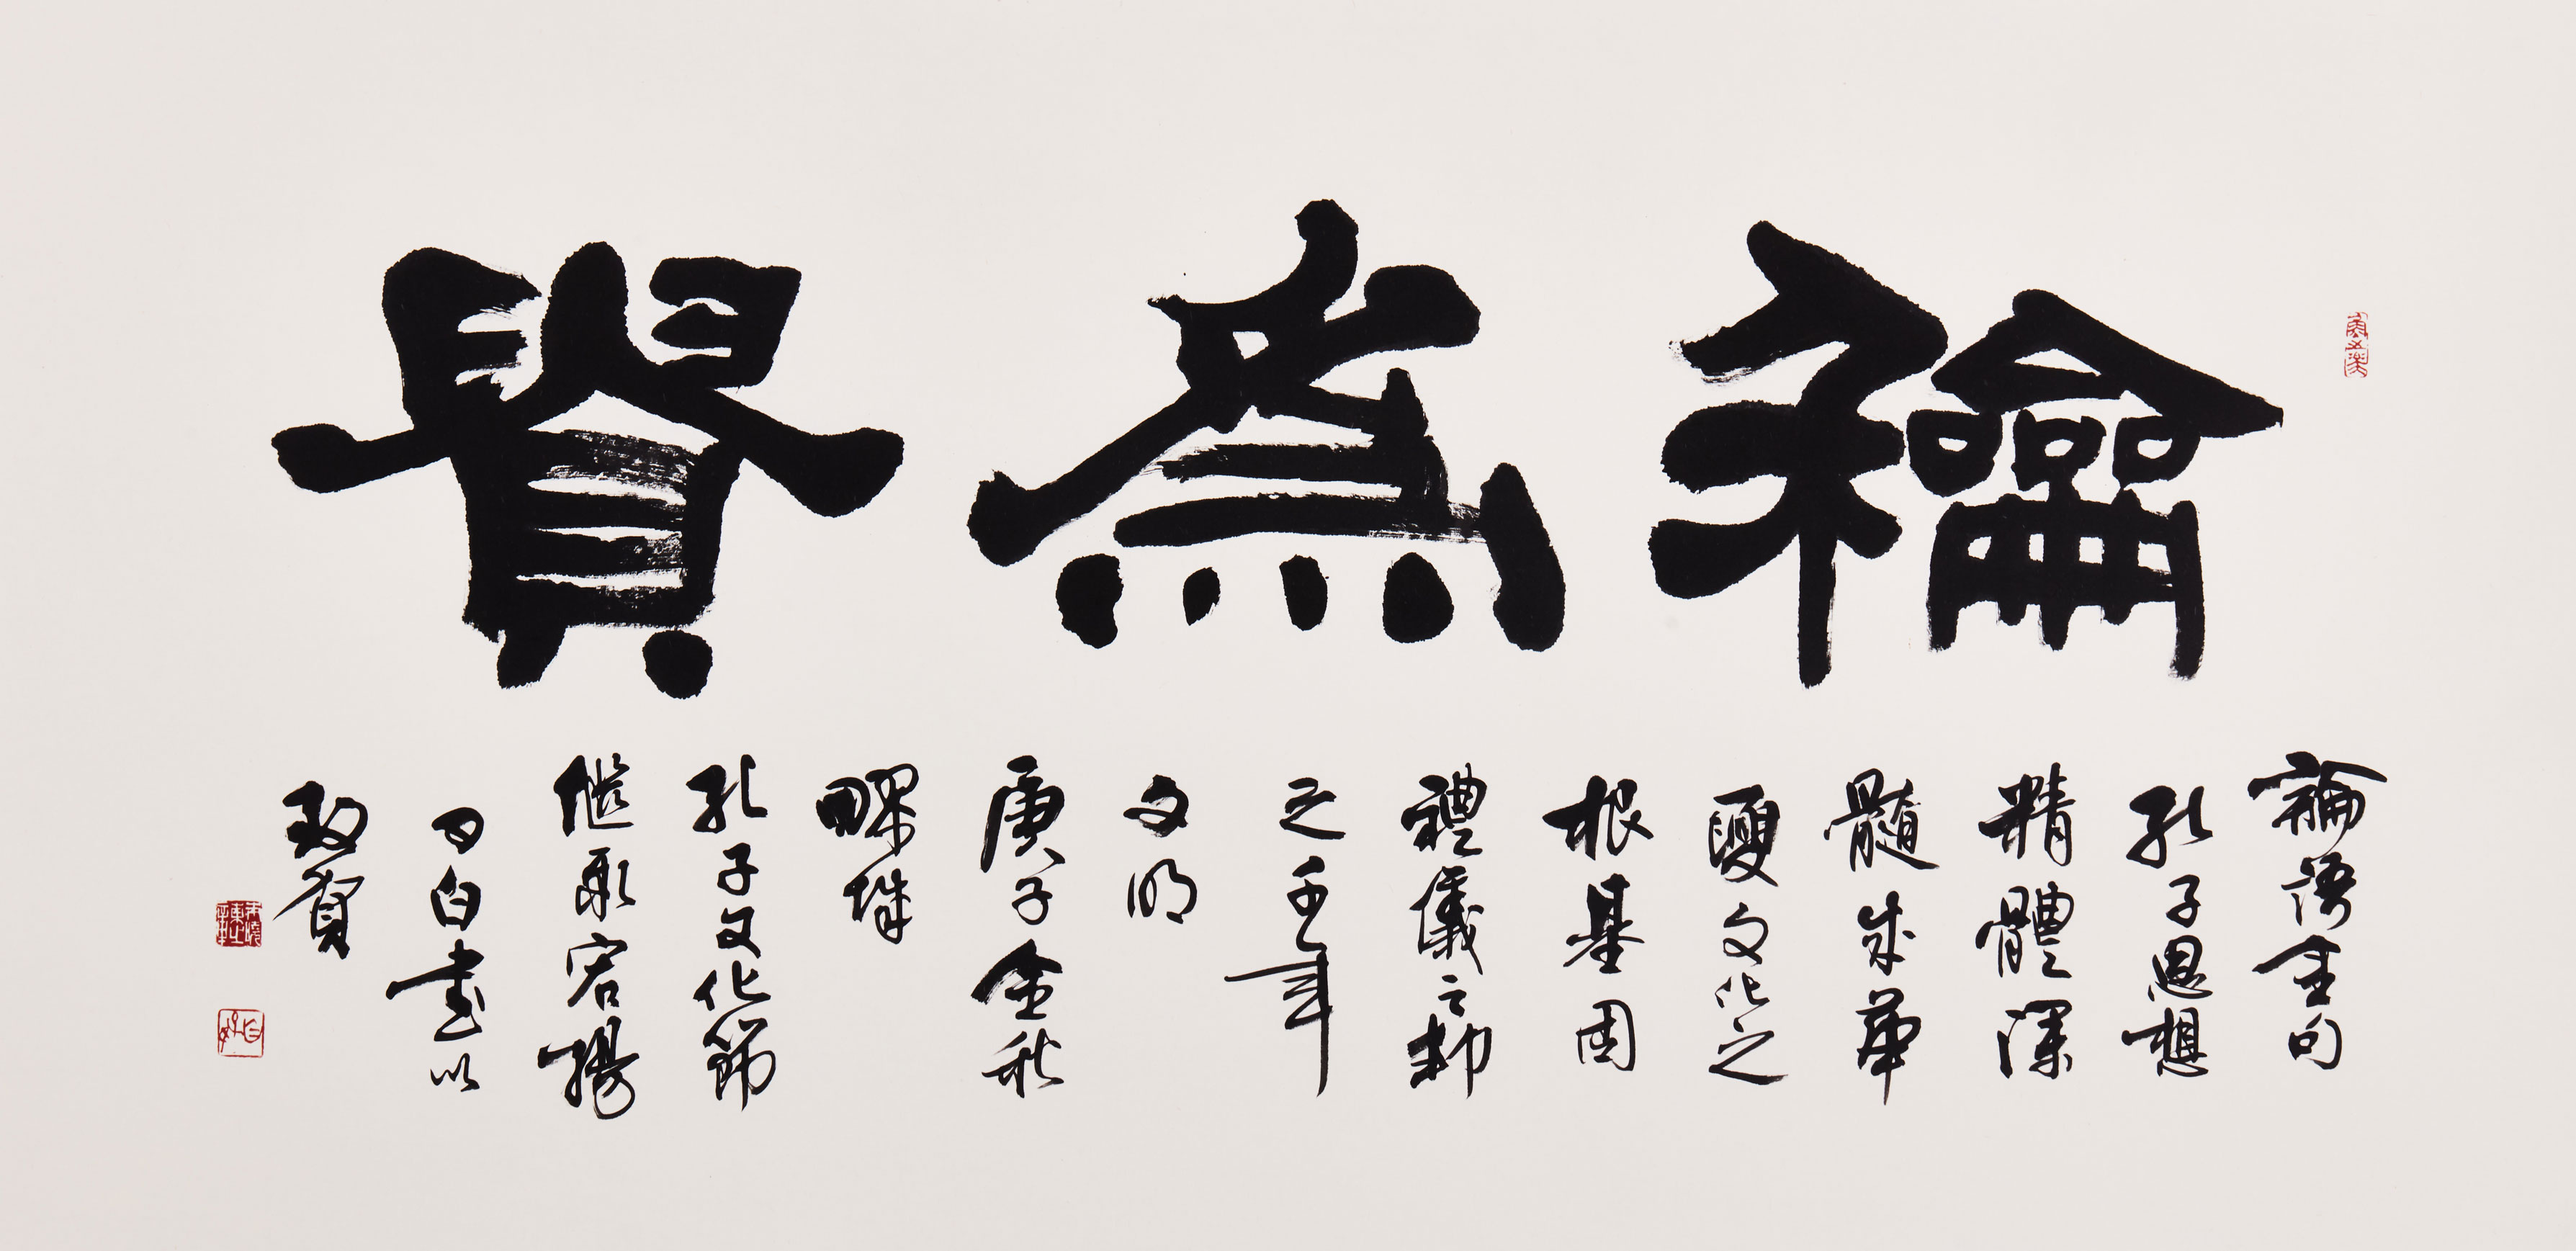 龢為貴
論語金句
孔子思想
精體深
髓成華
夏文化之
根基固
禮儀之邦
之千年
文明
庚子金秋
孔子文化節
継承宏揚
白書以
致賀